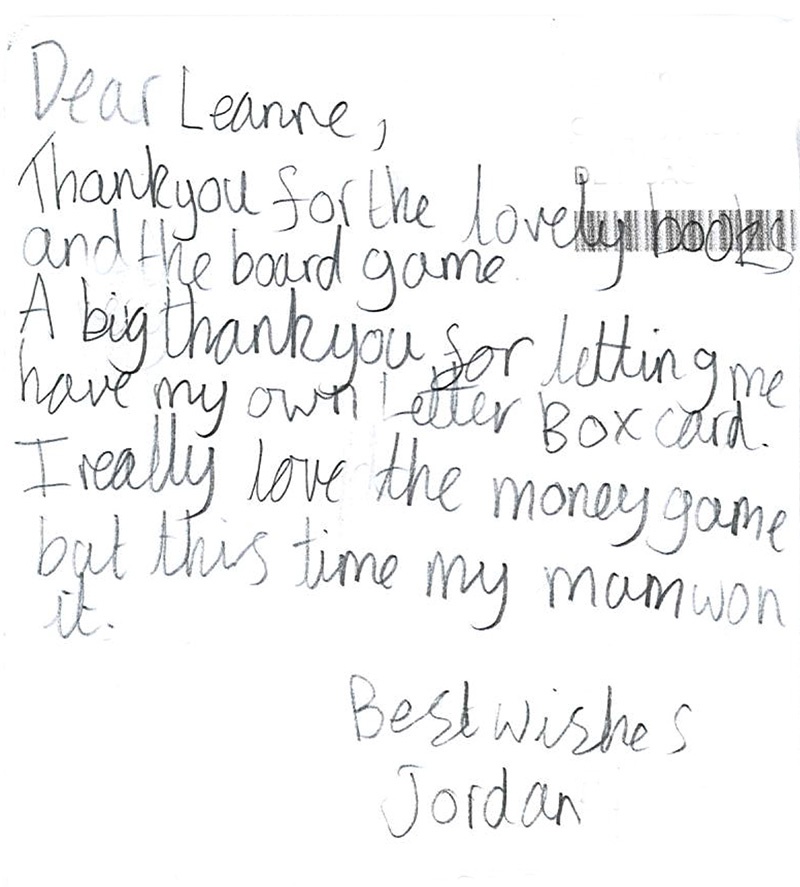 Dear Leanne,
Thankyou for the lovely books
and the board game.
A big thankyou for letting me
have my own Letter Box card.
I really love the money game
but this time my mam won
it.
Best wishes
Jordan